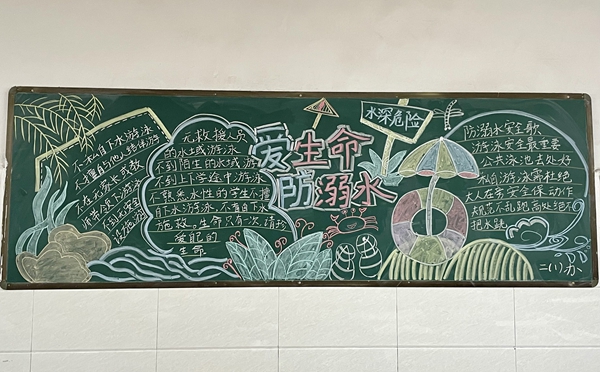 不私自下水游泳
不擅自与他人结伴游泳
不在无家长或教
师带领下游泳
不到无安全设
无救援人员
的水域游泳
不到陌生的水域游泳
不到上学途中游泳
不熟悉水性的学生不擅
自下水游泳,不盲目下水
施救。生命只有一次,请珍
爱自己的
生命
爱生命
防溺水
水深危险
防溺水安全歌
游泳安全最重要
公共泳池去处好
私自游泳需杜绝
大人在旁安全保
动作规范不乱跑
高处绝不把水跳
二(1)办